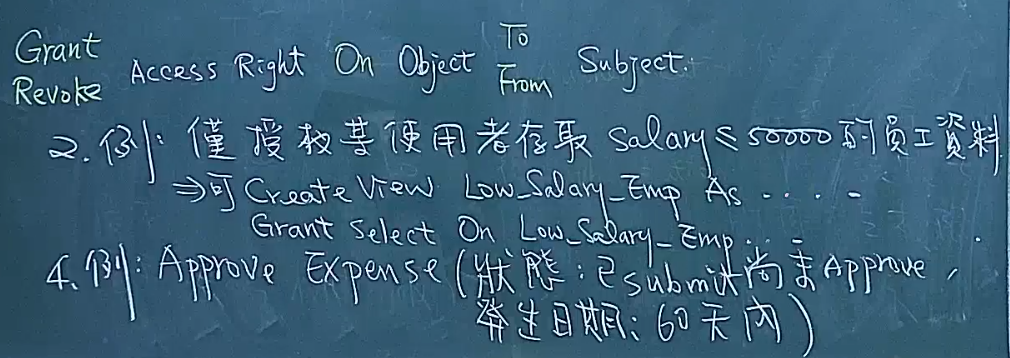 Grant Revoke Access Right On Object To From Subject.
2. 例: 僅授教某使用者存取 Salary ≤ 50000 的員工資料
⇒可 Create View Low_Salary_Emp As . . . .
Grant Select On Low_Salary_Emp . . .
4. 例: Approve Expense (狀態: 已submit尚未Approve,
發生日期: 60天內)